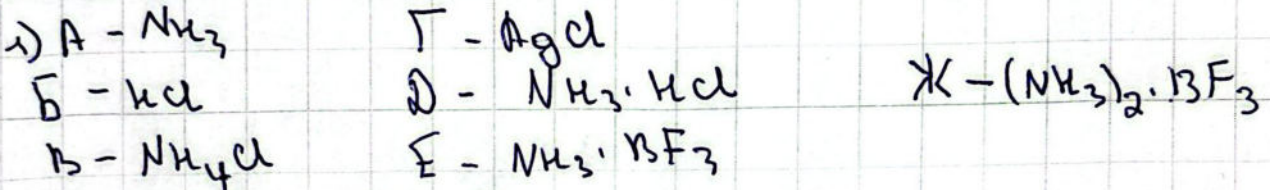 1) А - NH₃
Б - HCl
В - NH₄Cl
Г - AgCl
Д - NH₃·HCl
Е - NH₃·BF₃
Ж - (NH₃)₂·BF₃